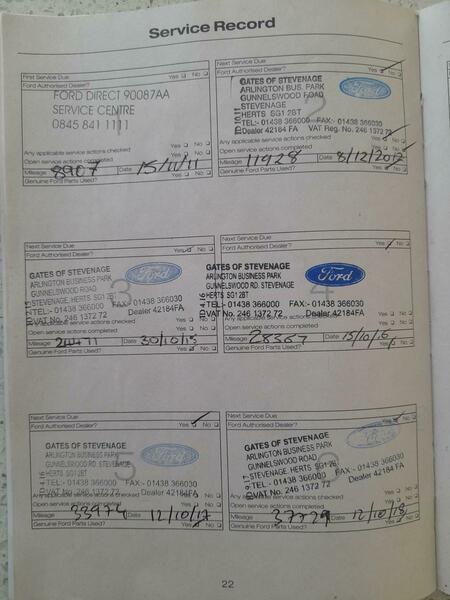 Service Record
First Service Due
Yes No
Ford Authorised Dealer?
FORD DIRECT 90087AA
SERVICE CENTRE
0845 841 1111
1
Any applicable service actions checked Yes No
Open service actions completed Yes No
Mileage 8907 Date 15/11/11
Genuine Ford Parts Used? Yes No
Next Service Due
Ford Authorised Dealer? Yes No
GATES OF STEVENAGE
ARLINGTON BUS. PARK
GUNNELSWOOD ROAD
STEVENAGE
HERTS SG1 2BT
TEL:- 01438 366000 FAX:- 01438 366030
Dealer 42184 FA VAT Reg. No. 246 1372 72
Ford
2
Any applicable service actions checked Yes No
Open service actions completed Yes No
Mileage 11928 Date 8/12/2012
Genuine Ford Parts Used? Yes No
Next Service Due
Ford Authorised Dealer? Yes No
GATES OF STEVENAGE
ARLINGTON BUSINESS PARK
GUNNELSWOOD ROAD
STEVENAGE, HERTS SG1 2BT
TEL- 01438 366000 FAX:- 01438 366030
VAT No. 246 1372 72 Dealer 42184FA
Ford
3
Open service actions completed Yes No
Mileage Date 30/10/15
Genuine Ford Parts Used? Yes No
Next Service Due
Ford Authorised Dealer? Yes No
GATES OF STEVENAGE
ARLINGTON BUSINESS PARK
GUNNELSWOOD RD. STEVENAGE
HERTS SG1 2BT
TEL- 01438 366000 FAX:- 01438 366030
VAT No. 246 1372 72 Dealer 42184FA
Ford
4
Any applicable service actions checked Yes No
Open service actions completed Yes No
Mileage 28367 Date 15/10/16
Genuine Ford Parts Used? Yes No
Next Service Due
Ford Authorised Dealer? Yes No
GATES OF STEVENAGE
ARLINGTON BUSINESS PARK
GUNNELSWOOD RD. STEVENAGE
HERTS SG1 2BT
TEL- 01438 366000 FAX:- 01438 366030
VAT No. 246 1372 72 Dealer 42184FA
Ford
5
Any applicable service actions checked Yes No
Open service actions completed Yes No
Mileage 33974 Date 12/10/17
Genuine Ford Parts Used? Yes No
Next Service Due
Ford Authorised Dealer? Yes No
GATES OF STEVENAGE
ARLINGTON BUSINESS PARK
GUNNELSWOOD ROAD
STEVENAGE HERTS SG1 2BT
TEL- 01438 366000 FAX:- 01438 366030
VAT No. 246 1372 72 Dealer 42184 FA
Any applicable service actions checked Yes No
Open service actions completed Yes No
Mileage 37729 Date 12/10/18
Genuine Ford Parts Used? Yes No
22